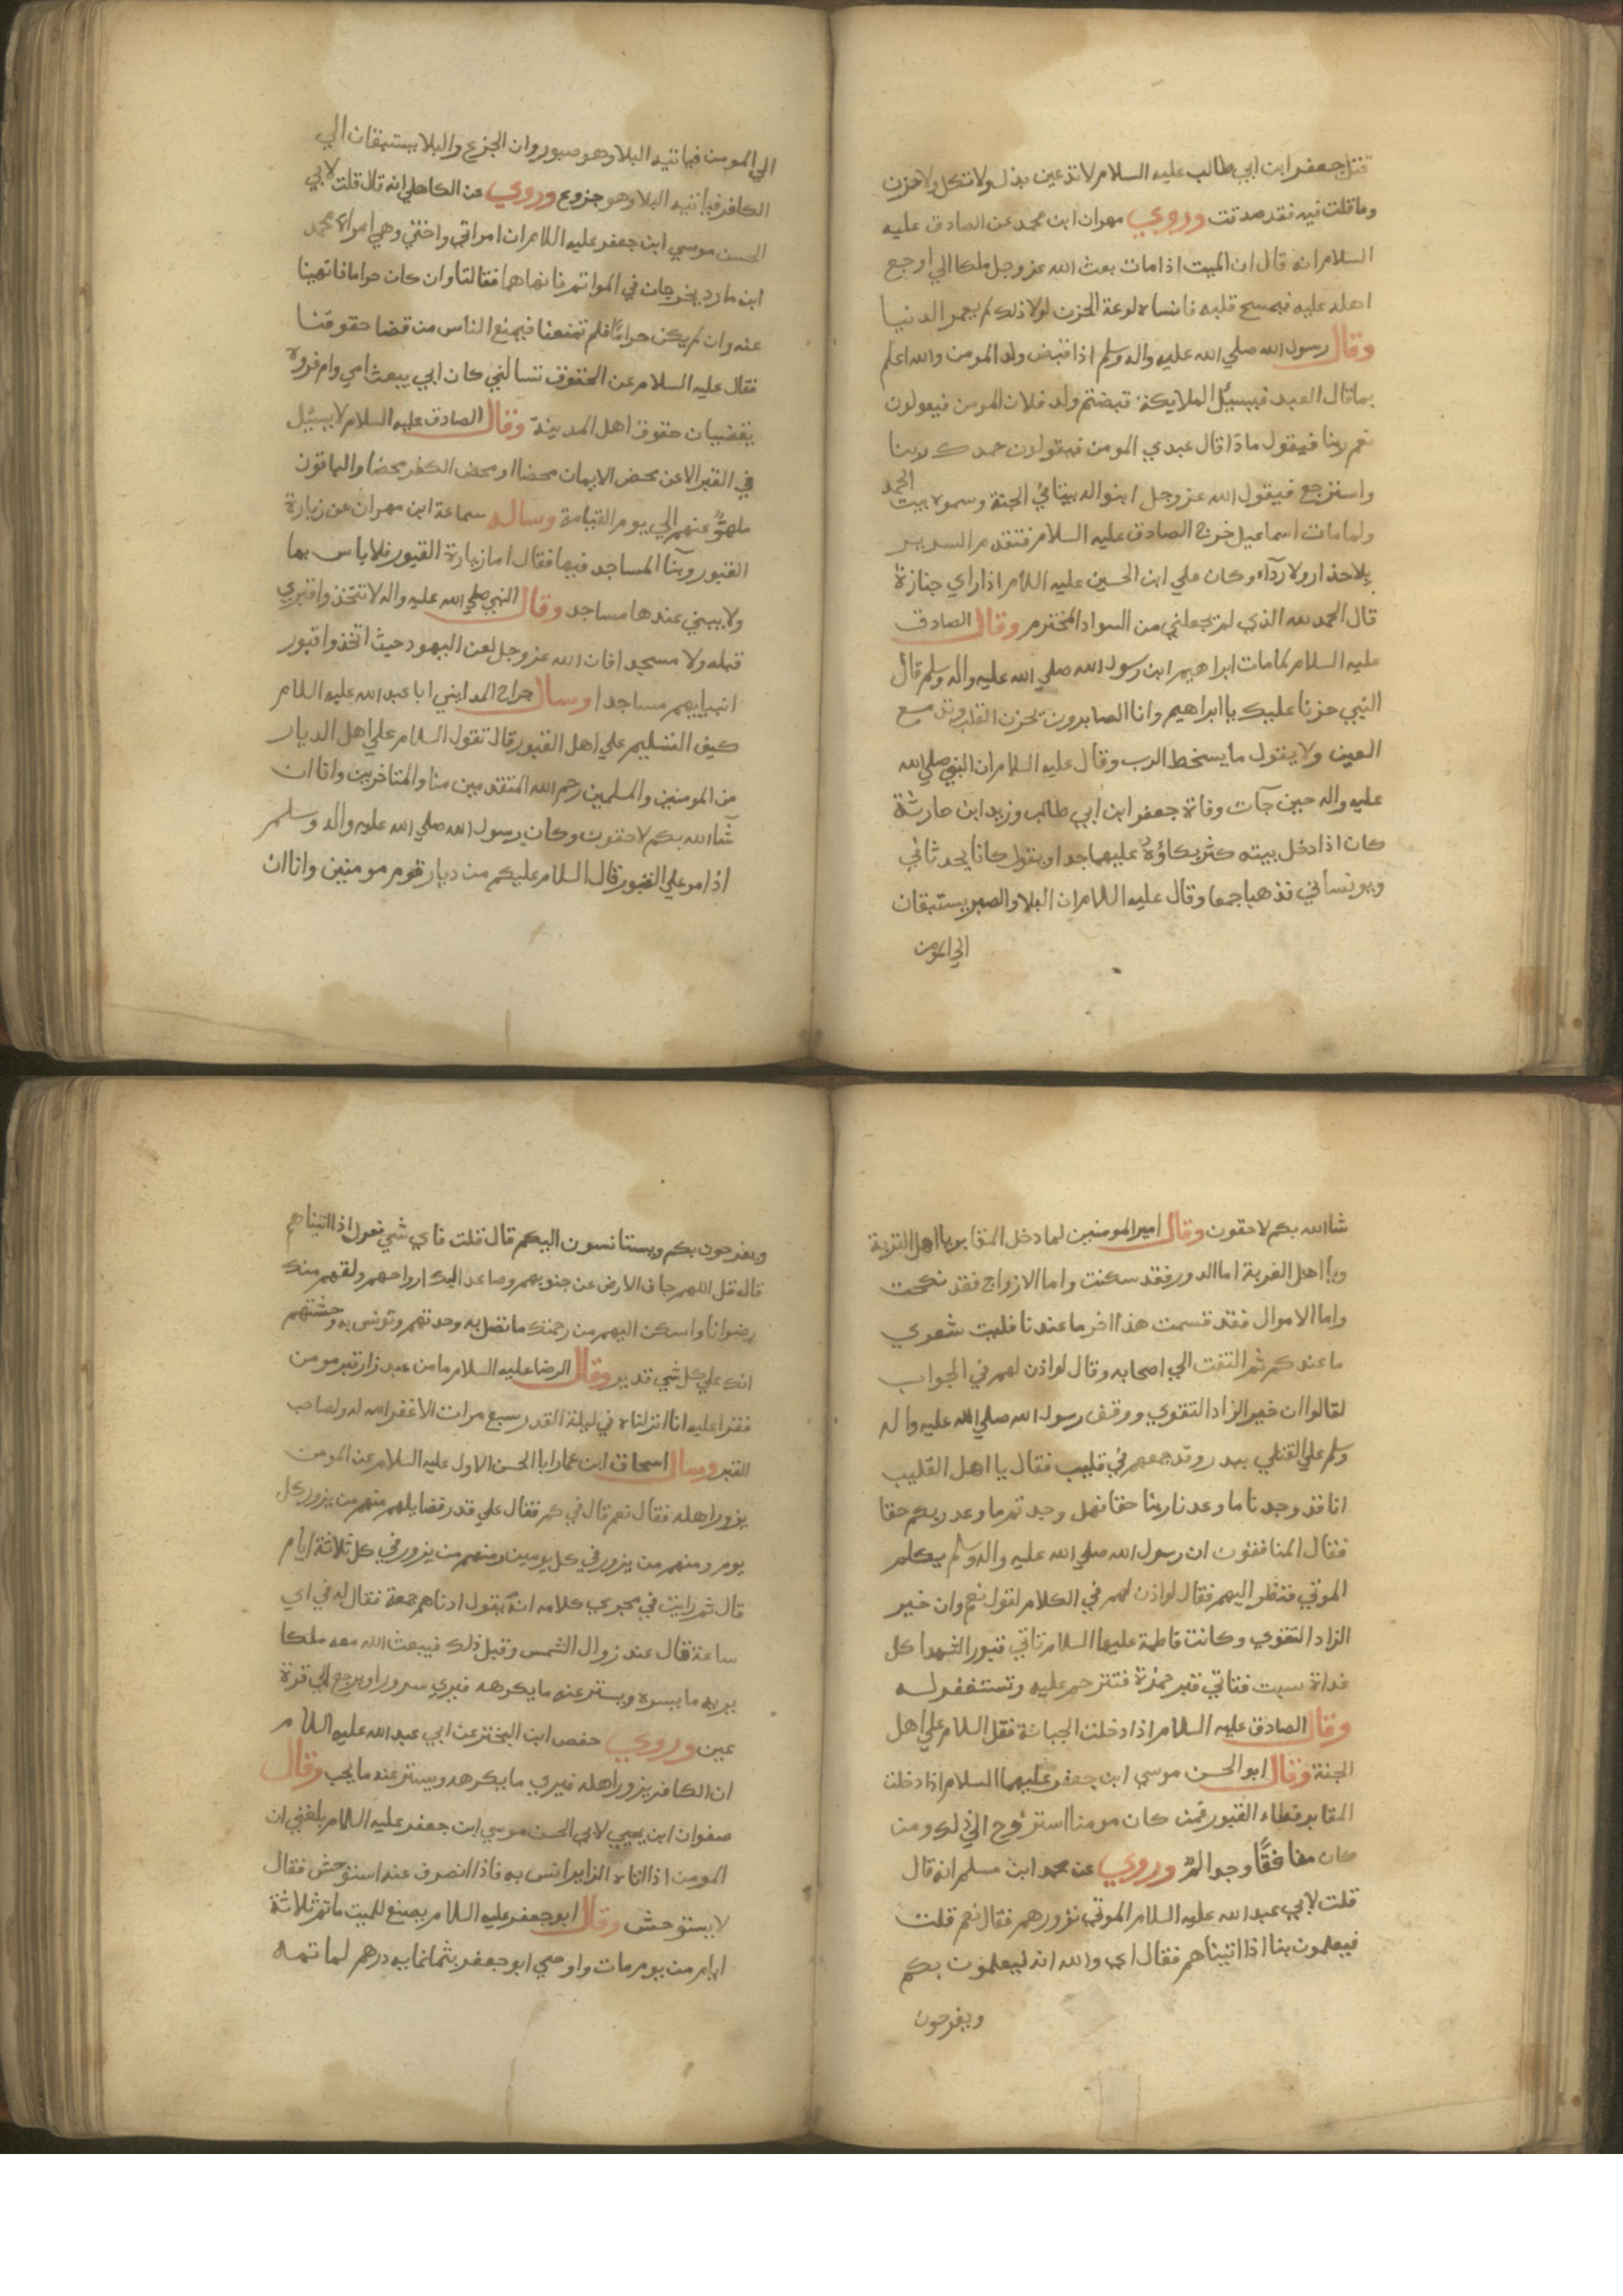 قتل جعفر ابن ابي طالب عليه السلام لا تدعين بذل ولا ثكل ولا حزن
وما قلت فيه فقد صدقت وروي مهران ابن محمد عن الصادق عليه
السلام انه قال ان الميت اذا مات بعث الله عز وجل ملكا الي اوجع
اهله عليه فيمسح قلبه فانساه لوعة الحزن لولا ذلك لم يعمر الدنيا
وقال رسول الله صلي الله عليه واله وسلم اذا قبض ولد المومن والله اعلم
بما قال العبد فيسئل الملايكة قبضتم ولد فلان المومن فيقولون
نعم ربنا فيقول ماذا قال عبدي المومن فيقولون حمدك ربنا
واسترجع فيقول الله عز وجل ابنوا له بيتا في الجنة وسموه بيت الحمد
ولما مات اسماعيل خرج الصادق عليه السلام فتقدم السرير
بلا حذا ولا رداء وكان علي ابن الحسين عليه السلام اذا راي جنازة
قال الحمد لله الذي لم يجعلني من السواد المخترم وقال الصادق
عليه السلام لما مات ابراهيم ابن رسول الله صلي الله عليه واله وسلم قال
النبي حزنا عليك يا ابراهيم وانا الصابرون يحزن القلب وتدمع
العين ولا يقول ما يسخط الرب وقال عليه السلام ان النبي صلي الله
عليه واله حين جآت وفاة جعفر ابن ابي طالب وزيد ابن حارثة
كان اذا دخل بيته كثر بكاؤه عليهما جدا ويقول كانا يحدثاني
ويونساني فذهبا جمعا وقال عليه السلام ان البلا والصبر يستبقان
الي المومن
الي المومن فياتيه البلا وهو صبور وان الجزع والبلا يستبقان الي
الكافر فياتيه البلا وهو جزوع وروي عن الكاهلي انه قال قلت لابي
الحسن موسي ابن جعفر عليه السلام ان امراتي واختي وهي امراة محمد
ابن مارد يخرجان في المواتم فانهاهما فقالتا وان كان حراما فانهينا
عنه وان لم يكن حراما فلم تمنعنا فيمنع الناس من قضا حقوقنا
فقال عليه السلام عن الحقوق تسالني كان ابي يبعث امي وام فروه
يقضيان حقوق اهل المدينة وقال الصادق عليه السلام لا يسئل
في القبر الا عن محض الايمان محضا او محض الكفر محضا والباقون
ملهوٌّ عنهم الي يوم القيامة وساله سماعة ابن مهران عن زيارة
القبور وبنآ المساجد فيها فقال اما زيارة القبور فلا باس بها
ولا يبني عندها مساجد وقال النبي صلي الله عليه واله لا تتخذوا قبري
قبله ولا مسجدا فان الله عز وجل لعن اليهود حيث اتخذوا قبور
انبيايهم مساجدا وسال جراح المدايني ابا عبد الله عليه السلام
كيف التسليم علي اهل القبور قال تقول السلام علي اهل الديار
من المومنين والمسلمين رحم الله المتقدمين منا والمتاخرين وانا ان
شآ الله بكم لاحقون وكان رسول الله صلي الله عليه واله وسلم
اذا مر علي القبور قال السلام عليكم من ديار قوم مومنين وانا ان
شا الله بكم لاحقون وقال امير المومنين لما دخل المقابر يا اهل التربة
ويا اهل الغربة اما الدور فقد سكنت واما الازواج فقد نكحت
واما الاموال فقد قسمت هذا اخر ما عندنا فليت شعري
ما عندكم ثم التفت الي اصحابه وقال لو اذن لهم في الجواب
لقالوا ان خير الزاد التقوي ووقف رسول الله صلي الله عليه واله
وسلم علي القتلي ببدر وقد جمعهم في قليب فقال يا اهل القليب
انا قد وجدنا ما وعدنا ربنا حقا فهل وجدتم ما وعد ربكم حقا
فقال المنافقون ان رسول الله صلي الله عليه واله وسلم يكلم
الموتي فنظر اليهم فقال لو اذن لهم في الكلام لقولو نعم وان خير
الزاد التقوي وكانت فاطمة عليها السلام تاتي قبور الشهدا كل
غداة سبت فتاتي قبر حمزة فتترحم عليه وتستغفر له
وقال الصادق عليه السلام اذا دخلت الجبانة فقل السلام علي اهل
الجنة وقال ابو الحسن موسي ابن جعفر عليهما السلام اذا دخلت
المقابر فطاء القبور فمن كان مومنا استروح الي ذلك ومن
كان منافقًا وجد المٌ وروي عن محمد ابن مسلم انه قال
قلت لابي عبد الله عليه السلام الموتي نزورهم فقال نعم قلت
فيعلمون بنا اذا اتيناهم فقال اي والله انه ليعلمون بكم
ويفرحون
ويفرحون بكم ويستانسون اليكم قال قلت فاي شي نقول اذا اتيناهم
قال قل اللهم جاف الارض عن جنوبهم وصاعد اليك ارواحهم ولقهم منك
رضوانا واسكن اليهم من رحمتك ما تصل به وحدتهم وتونس به وحشتهم
انك علي كل شي قدير وقال الرضا عليه السلام ما من عبد زار قبر مومن
فقرا عليه انا انزلناه في ليلة القدر سبع مرات الا غفر الله له ولصاحب
القبر وسال اسحاق ابن عمار ابا الحسن الاول عليه السلام عن المومن
يزور اهله فقال نعم قال في كم فقال علي قدر فضايلهم منهم من يزور كل
يوم ومنهم من يزور في كل يومين ومنهم من يزور في كل ثلاثة ايام
قال ثم رايت في مجري كلامه انه يقول ادناهم جمعة فقال له في اي
ساعة قال عند زوال الشمس وقبل ذلك فيبعث الله معه ملكا
يريه ما يسره ويستر عنه ما يكرهه فيري سرورا ويرجع الي قرة
عين وروي حفص ابن البختر عن ابي عبد الله عليه السلام
ان الكافر يزور اهله فيري ما يكرهه ويستر عنه ما يحب وقال
صفوان ابن يحيي لابي الحسن موسي ابن جعفر عليه السلام بلغني ان
المومن اذا اتاه الزاير انس به فاذا انصرف عنه استوحش فقال
لا يستوحش وقال ابو جعفر عليه السلام يصنع للميت ماتم ثلاثة
ايام من يوم مات واوصي ابو جعفر بثمانمايه درهم لماتمه